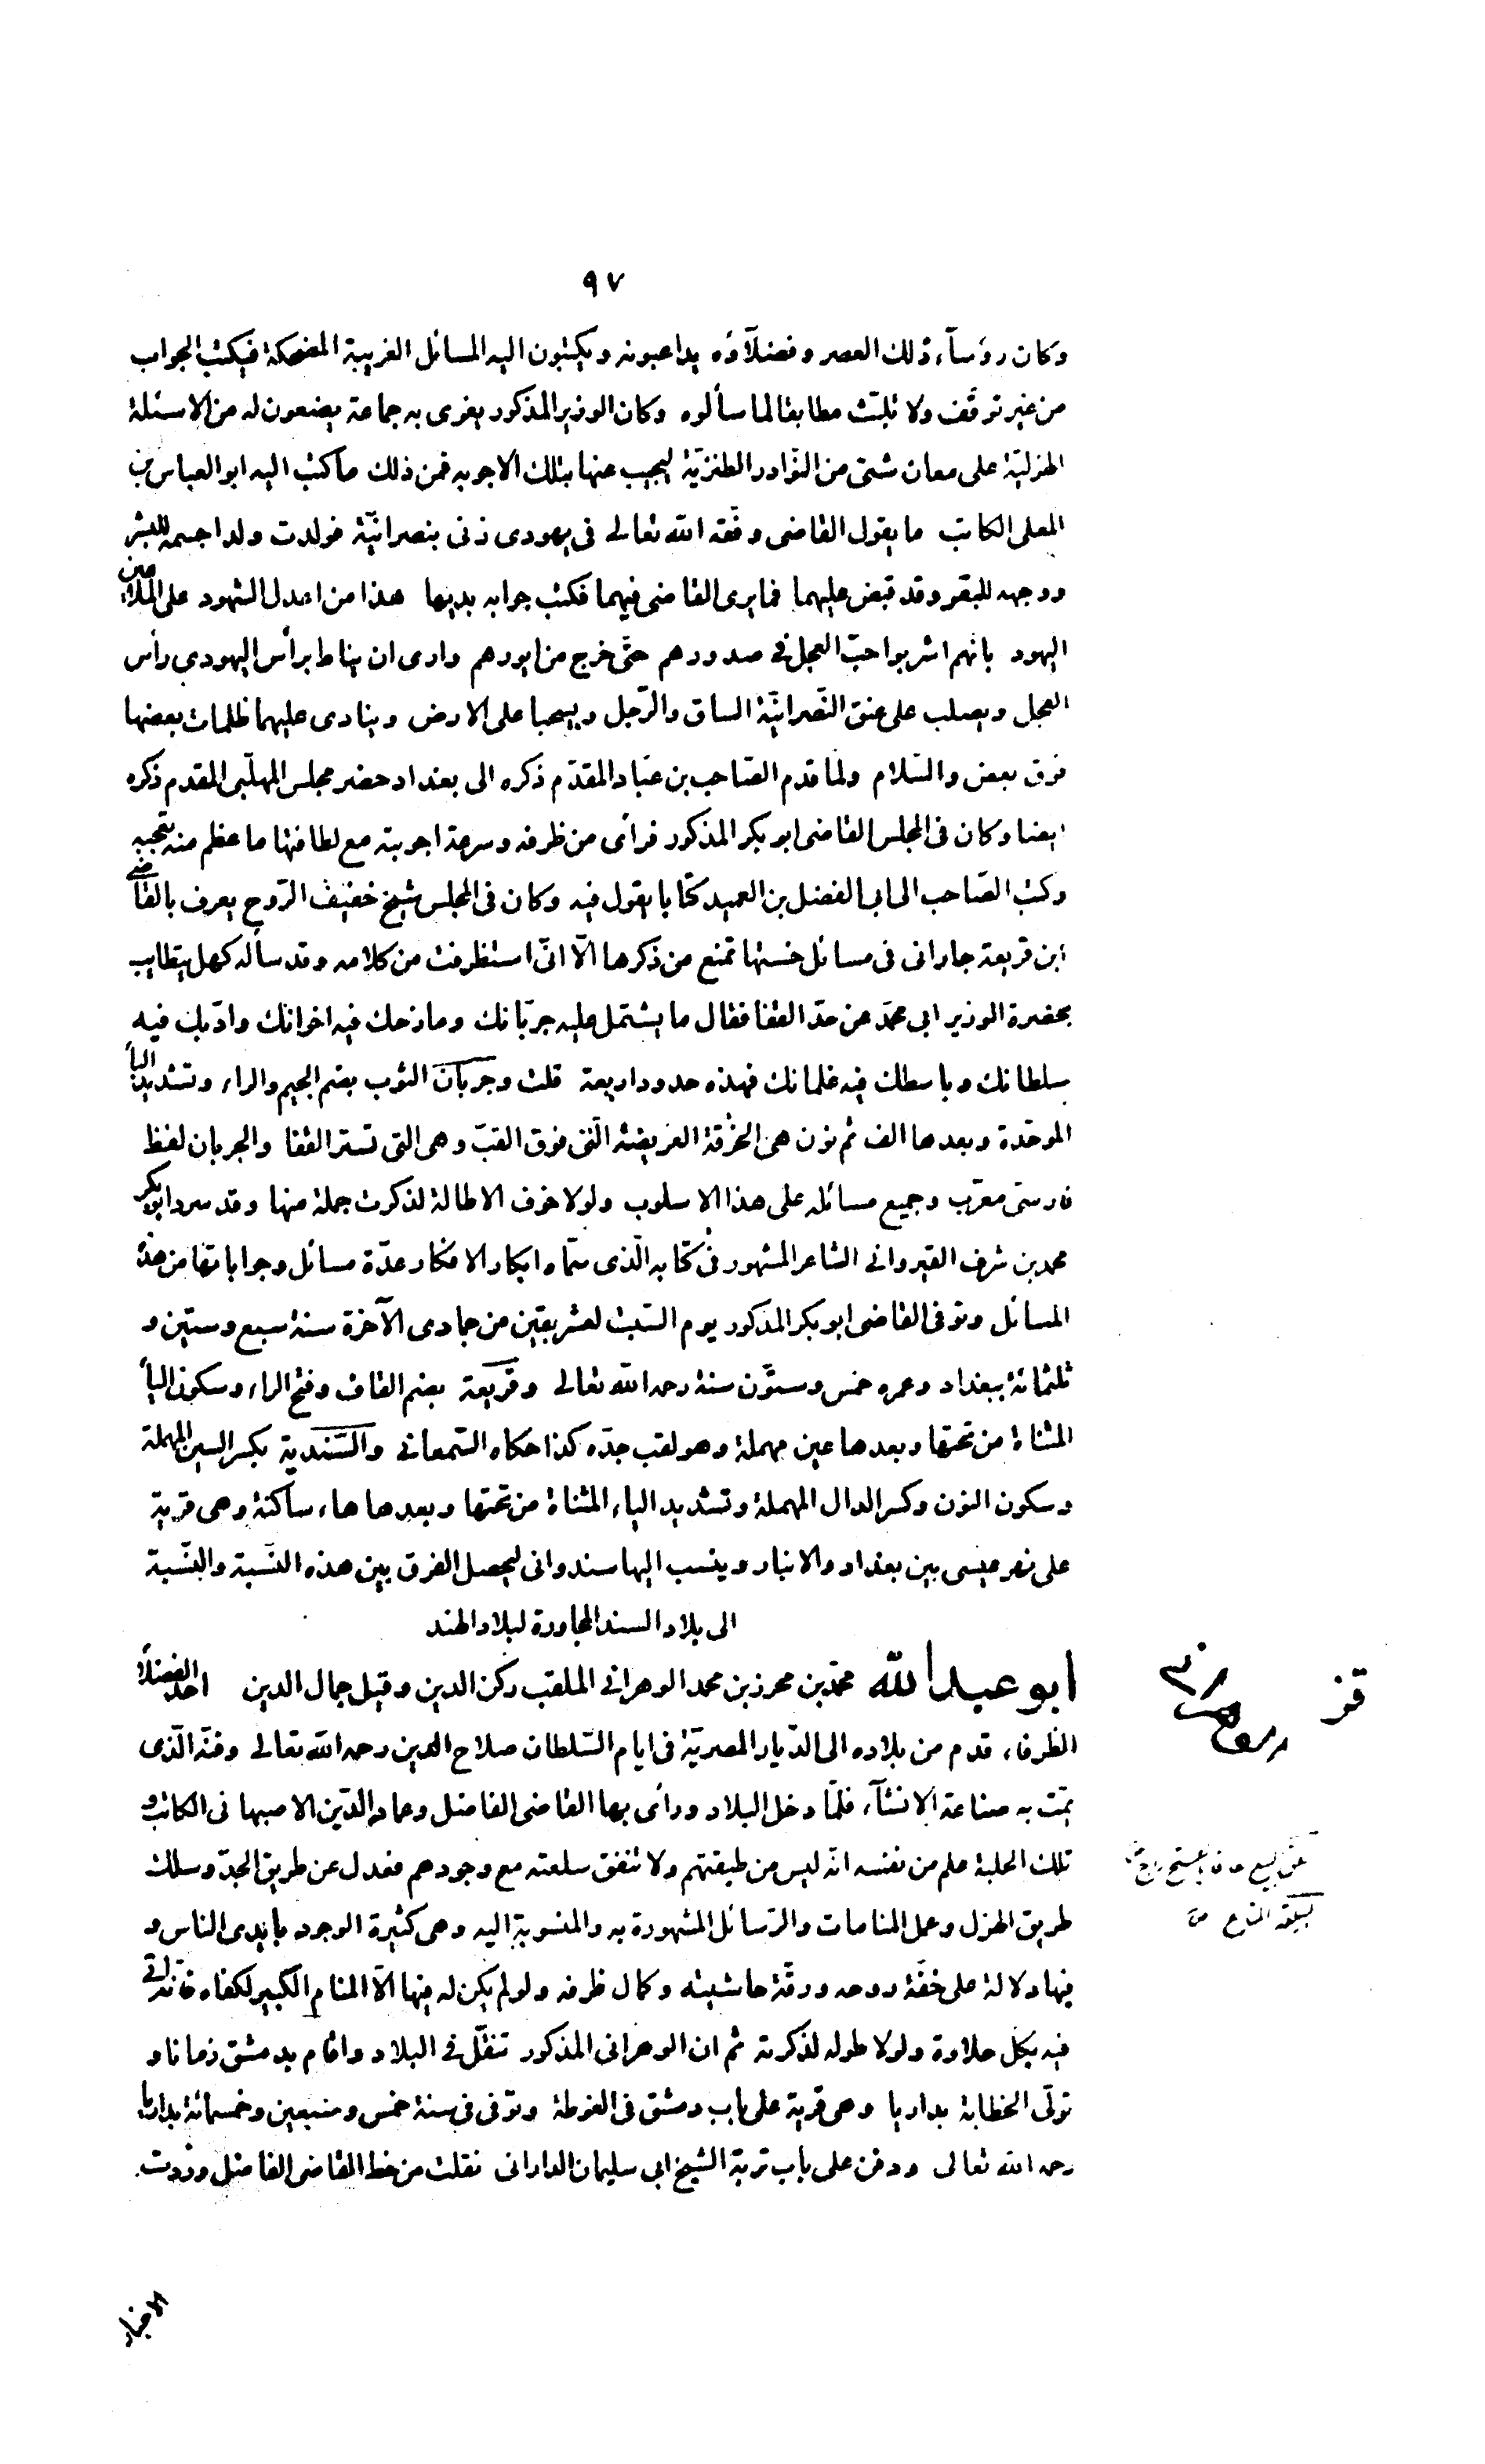 ٩٧
وكان رؤسآء ذلك العصر وفضلآؤه يداعبونه ويكتبون اليه المسائل الغريبة المضحكة فيكتب الجواب
من غير توقّف ولا تلبّث مطابقا لما سألوه وكان الوزير المذكور يغرى به جماعة يضعون له من الاسئلة
الهزليّة على معان شتى من النّوادر الطنزيّة ليجيب عنها بتلك الاجوبه فمن ذلك ما كتب اليه ابو العباس بن
المعلى الكاتب ما يقول القاضى وفّقه الله تعالى فى يهودى زنى بنصرانيّة فولدت ولدا جسمه للبشر
ووجهه للبقر وقد قبض عليهما فما يرى القاضى فيهما فكتب جوابه بديها هذا من اعدل الشهود على الملاعين
اليهود بانهم اشربوا حبّ العجل فى صدورهم حتّى خرج من ايورهم وارى ان يناط برأس اليهودى رأس
العجل ويصلب على عنق النّصرانيّة الساق والرّجل ويسحبا على الارض وينادى عليهما ظلمات بعضها
فوق بعض والسّلام ولما قدم الصّاحب بن عبّاد المقدّم ذكره الى بغداد حضر مجلس المهلّبى المقدم ذكره
ايضا وكان فى المجلس القاضى ابو بكر المذكور فرأى من ظرفه وسرعة اجوبته مع لطافتها ما عظم منه تعجّبه
وكتب الصّاحب الى ابى الفضل بن العميد كتابا يقول فيه وكان فى المجلس شيخ خفيف الرّوح يعرف بالقاضى
ابن قريعة جارانى فى مسائل خستها تمنع من ذكرها الّا انّى استظرفت من كلامه وقد سأله كهل يتطايب
بحضرة الوزير ابى محمّد عن حدّ القفا فقال ما يشتمل عليه جربّانك ومازحك فيه اخوانك وادّبك فيه
سلطانك وباسطك فيه غلمانك فهذه حدود اربعة قلت وجربان الثوب بضم الجيم والراء وتشديد الباء
الموحّدة وبعدها الف ثم نون هى الخرقة العريضة الّتى فوق القبّ وهى التى تستر القفا والجربان لفظ
فارسىّ معرّب وجميع مسائله على هذا الاسلوب ولولا خوف الاطالة لذكرت جملة منها وقد سرد ابو بكر
محمد بن شرف القيروانى الشاعر المشهور فى كتابه الّذى سمّاه ابكار الافكار عدّة مسائل وجواباتها من هذه
المسائل وتوفى القاضى ابو بكر المذكور يوم السّبت لعشر بقين من جمادى الآخرة سنة سبع وستين و
ثلثمائة ببغداد وعمره خمس وستّون سنة رحمه الله تعالى وقريعة بضم القاف وفتح الراء وسكون اليأ
المثناة من تحتها وبعدها عين مهملة وهو لقب جدّه كذا حكاه السّمعانى والسّندية بكسر السين المهملة
وسكون النون وكسر الدال المهملة وتشديد الياء المثناة من تحتها وبعدها هاء ساكنة وهى قرية
على نهر عيسى بين بغداد والانبار وينسب اليها سندوانى ليحصل الفرق بين هذه النّسبة والنّسبة
الى بلاد السند المجاورة لبلاد الهند
ابو عبد الله محمّد بن محرز بن محمد الوهرانى الملقب ركن الدين وقيل جمال الدين احد الفضلاء
الظرفاء قدم من بلاده الى الدّيار المصريّة فى ايام السّلطان صلاح الدين رحمه الله تعالى وفنّه الّذى
يمت به صناعة الانشآء فلمّا دخل البلاد ورأى بها القاضى الفاضل وعماد الدّين الاصبهانى الكاتب و
تلك الحلبة علم من نفسه انّه ليس من طبقتهم ولا تنفق سلعته مع وجودهم فعدل عن طريق الجدّ وسلك
طريق الهزل وعمل المنامات والرّسائل المشهورة به والمنسوبة اليه وهى كثيرة الوجود بايدى الناس و
فيها دلالة على خفّة روحه ورقّة حاشيته وكمال ظرفه ولو لم يكن له فيها الّا المنام الكبير لكفاه فانه اتى
فيه بكل حلاوة ولولا طوله لذكرته ثم ان الوهرانى المذكور تنقّل فى البلاد واقام بدمشق زمانا و
تولّى الخطابة بداريا وهى قرية على باب دمشق فى الغوطة وتوفى فى سنة خمس وسبعين وخمسمائة بداريا
رحمه الله تعالى ودفن على باب تربة الشيخ ابى سليمان الدارانى نقلت من خط القاضى الفاضل وردت
الاخبار